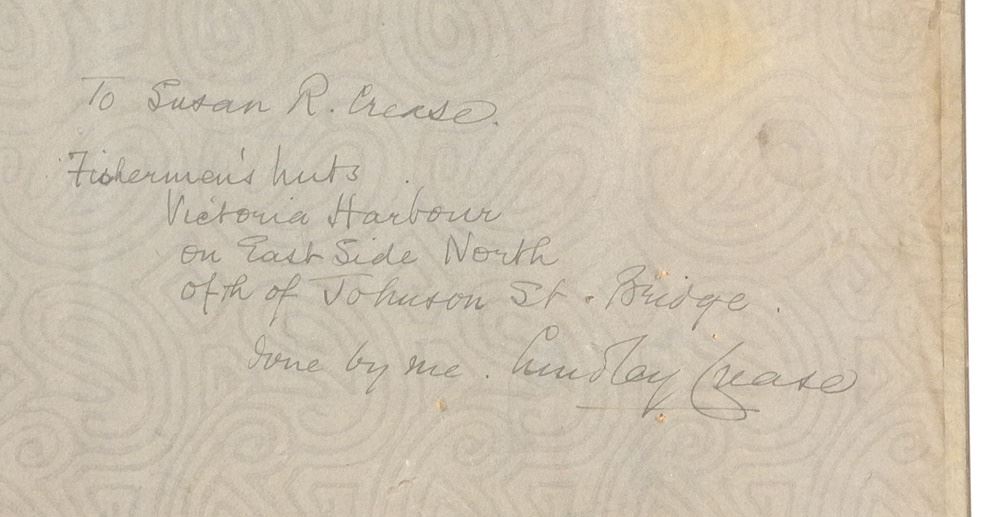 To Susan R. Crease.
Fishermen's huts
Victoria Harbour
on East Side North
of Johnson St. Bridge.
done by me. Lindley Crease